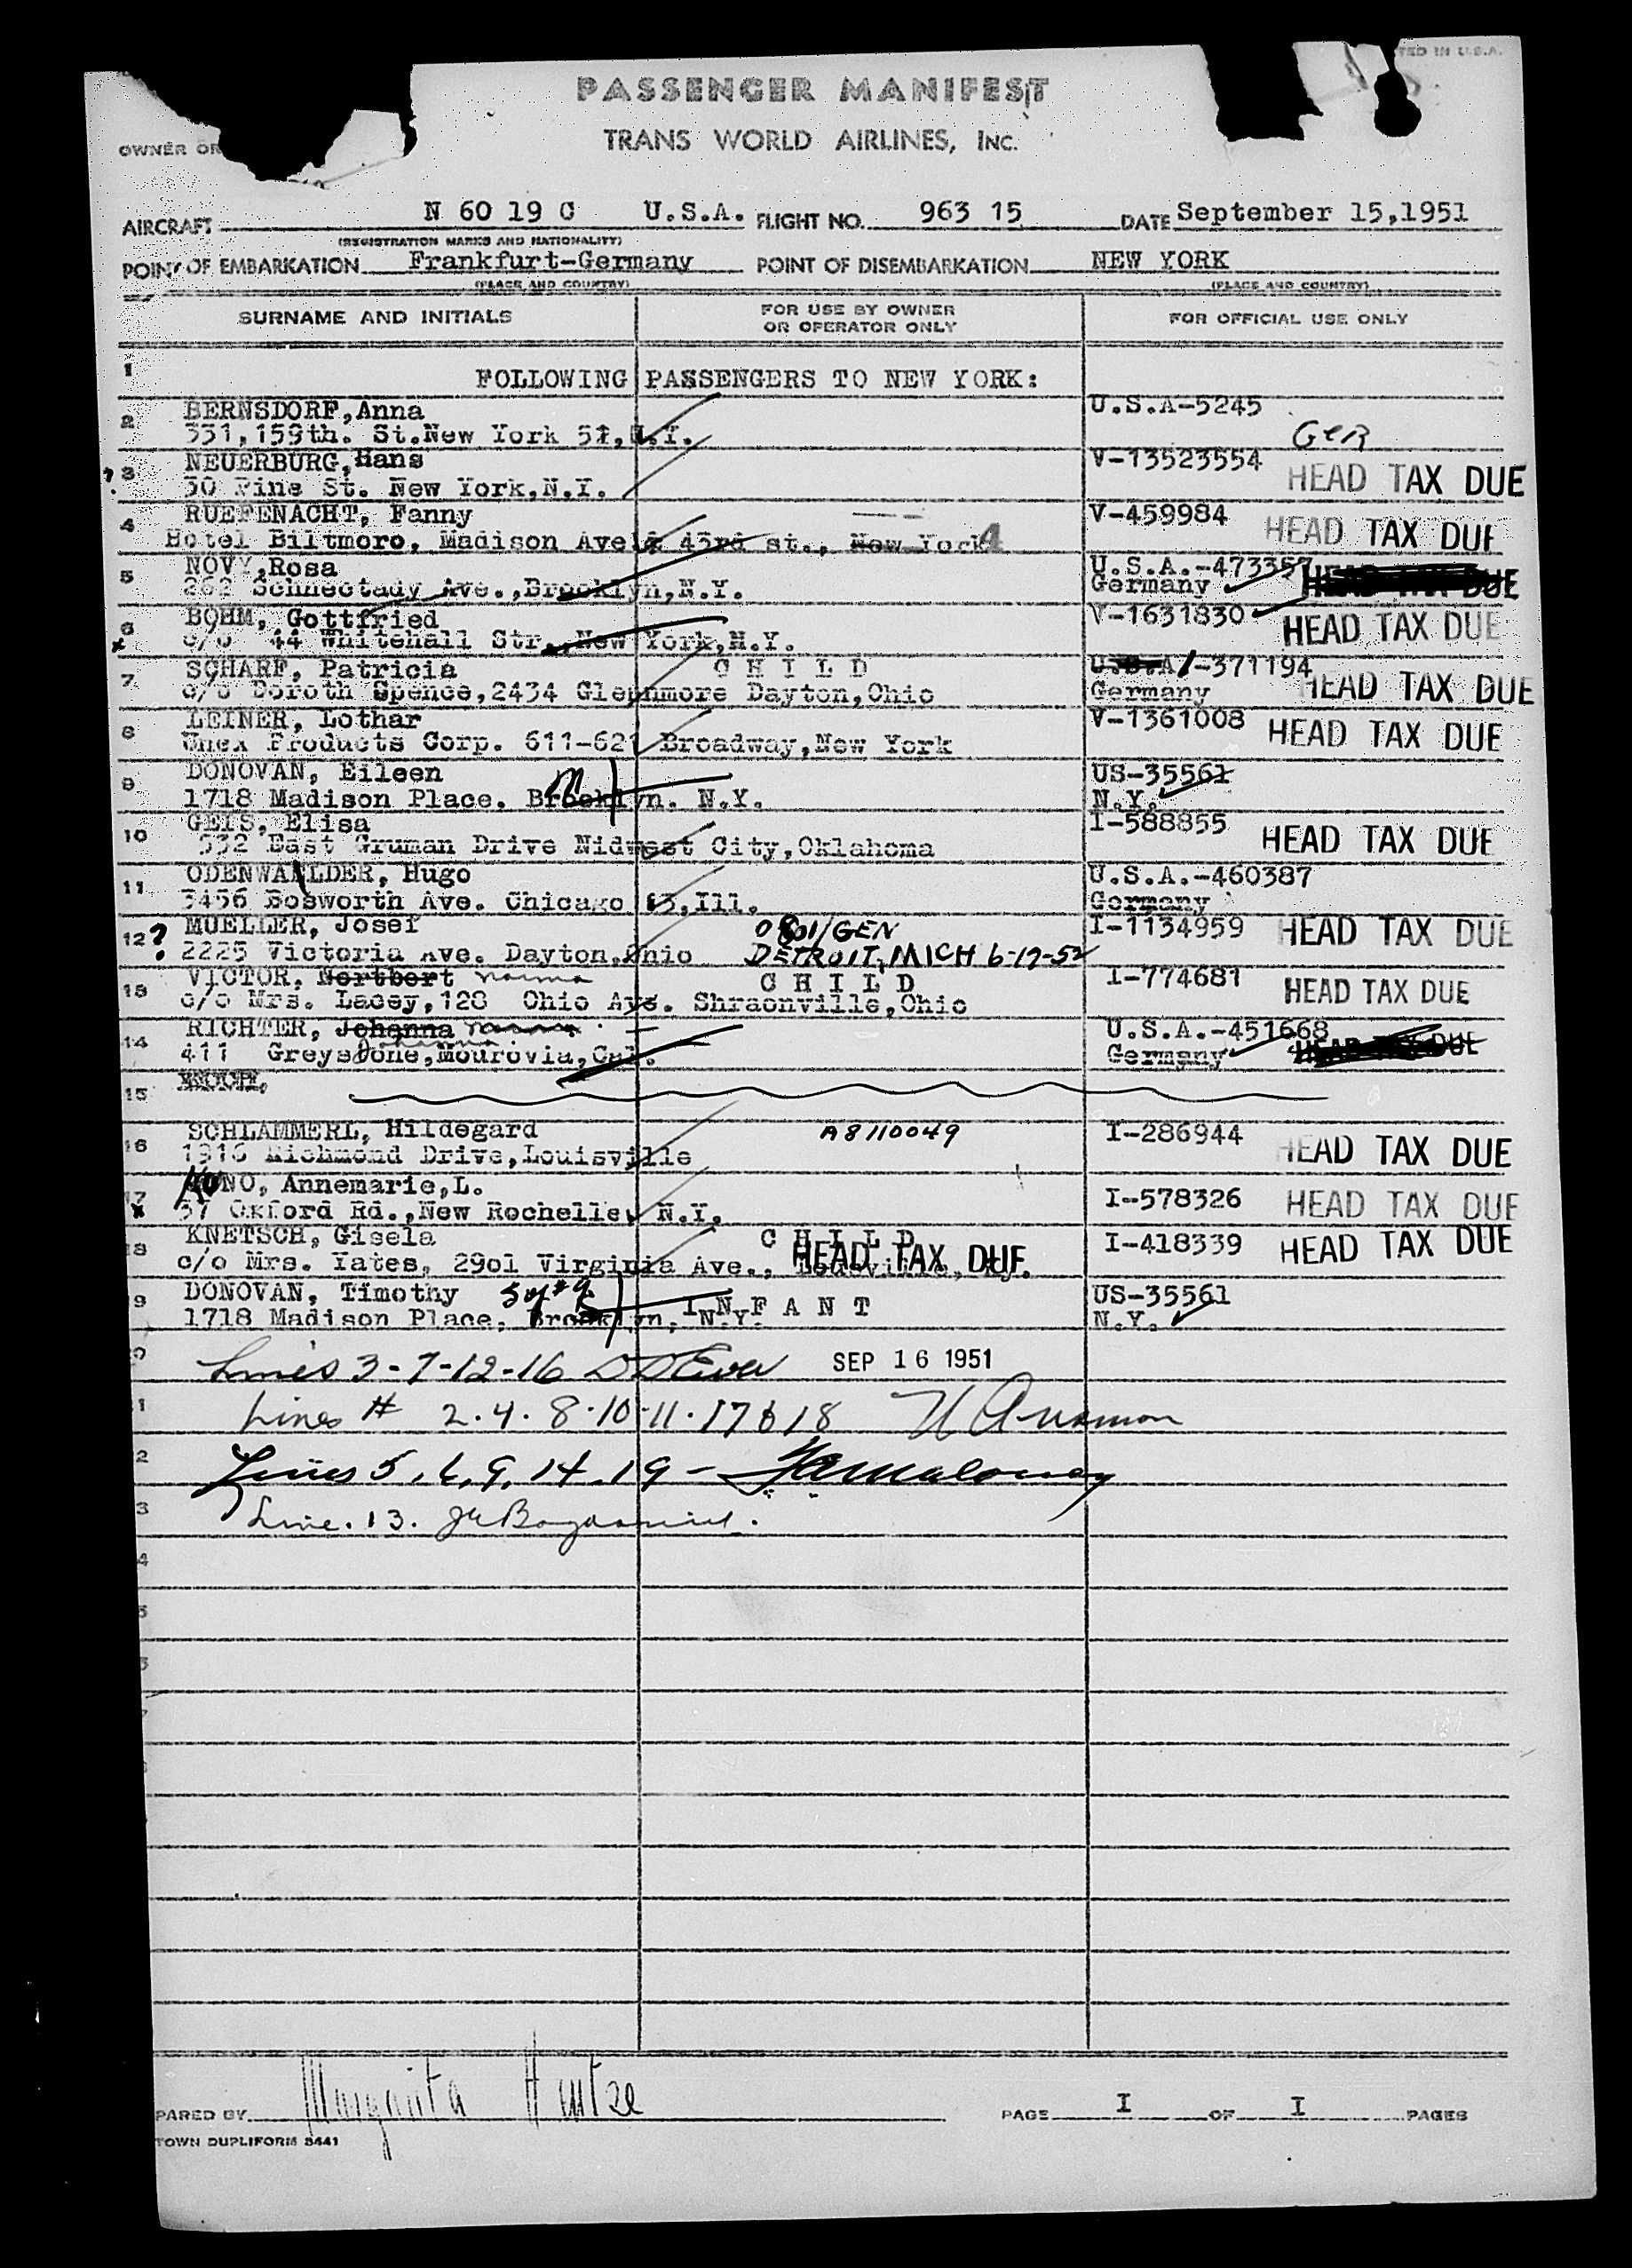 TED IN U.S.A.
PASSENGER MANIFEST
TRANS WORLD AIRLINES, INC.
OWNER OR
AIRCRAFT N 60 19 C U.S.A. FLIGHT NO. 963 15 DATE September 15,1951
(REGISTRATION MARKS AND NATIONALITY)
POINT OF EMBARKATION Frankfurt-Germany POINT OF DISEMBARKATION NEW YORK
(PLACE AND COUNTRY) (PLACE AND COUNTRY)
SURNAME AND INITIALS FOR USE BY OWNER OR OPERATOR ONLY FOR OFFICIAL USE ONLY
1 FOLLOWING PASSENGERS TO NEW YORK:
2 BERNSDORF, Anna U.S.A-5245
331,159th. St.New York 51,N.Y. GER
? 3 NEUERBURG, Hans V-13523554 HEAD TAX DUE
30 Pine St. New York,N.Y.
4 RUEFENACHT, Fanny V-459984 HEAD TAX DUE
Hotel Biltmoro, Madison Ave & 43rd st., New York 4
5 NOVY,Rosa U.S.A.-473357
262 Schnectady Ave.,Brooklyn,N.Y. Germany HEAD TAX DUE
6 BOHM, Gottfried V-1631830 HEAD TAX DUE
x c/o 44 Whitehall Str.,New York,N.Y.
7 SCHARF, Patricia C H I L D U.S.A-371194 HEAD TAX DUE
c/o Doroth Spence,2434 Glennmore Dayton,Ohio Germany
8 LEINER, Lothar V-1361008 HEAD TAX DUE
Unex Products Corp. 611-621 Broadway,New York
9 DONOVAN, Eileen US-35561
1718 Madison Place. Brooklyn. N.Y. N.Y.
10 GEIS, Elisa I-588855 HEAD TAX DUE
532 East Gruman Drive Nidwest City,Oklahoma
11 ODENWAELDER, Hugo U.S.A.-460387
3456 Bosworth Ave. Chicago 13,Ill. Germany
12 ? MUELLER, Josef 0801/GEN I-1134959 HEAD TAX DUE
2225 Victoria Ave. Dayton,Ohio DETROIT, MICH 6-17-52
13 VICTOR, Nortbert Norma C H I L D I-774681 HEAD TAX DUE
c/o Mrs. Lacey,128 Ohio Ave. Shraonville,Ohio
14 RICHTER, Johanna Johanna U.S.A.-451668
411 Greystone,Mourovia,Cal. Germany HEAD TAX DUE
15
16 SCHLAMMERL, Hildegard A8110049 I-286944 HEAD TAX DUE
1916 Richmond Drive,Louisville
17 KUNO, Annemarie,L. I-578326 HEAD TAX DUE
x 37 Oxford Rd.,New Rochelle, N.Y.
18 KNETSCH, Gisela C H I L D I-418339 HEAD TAX DUE
c/o Mrs. Yates, 2901 Virginia Ave., Louisville, Ky. HEAD TAX DUE
9 DONOVAN, Timothy I N F A N T US-35561
1718 Madison Place, Brooklyn, N.Y. N.Y.
Lines 3-7-12-16 SEP 16 1951
1 Lines # 2.4.8.10.11.17 & 18
2 Lines 5,6,9,14,19 -
3 Line.13.
4
PARED BY Margarita PAGE I OF I PAGES
TOWN DUPLIFORM 5441